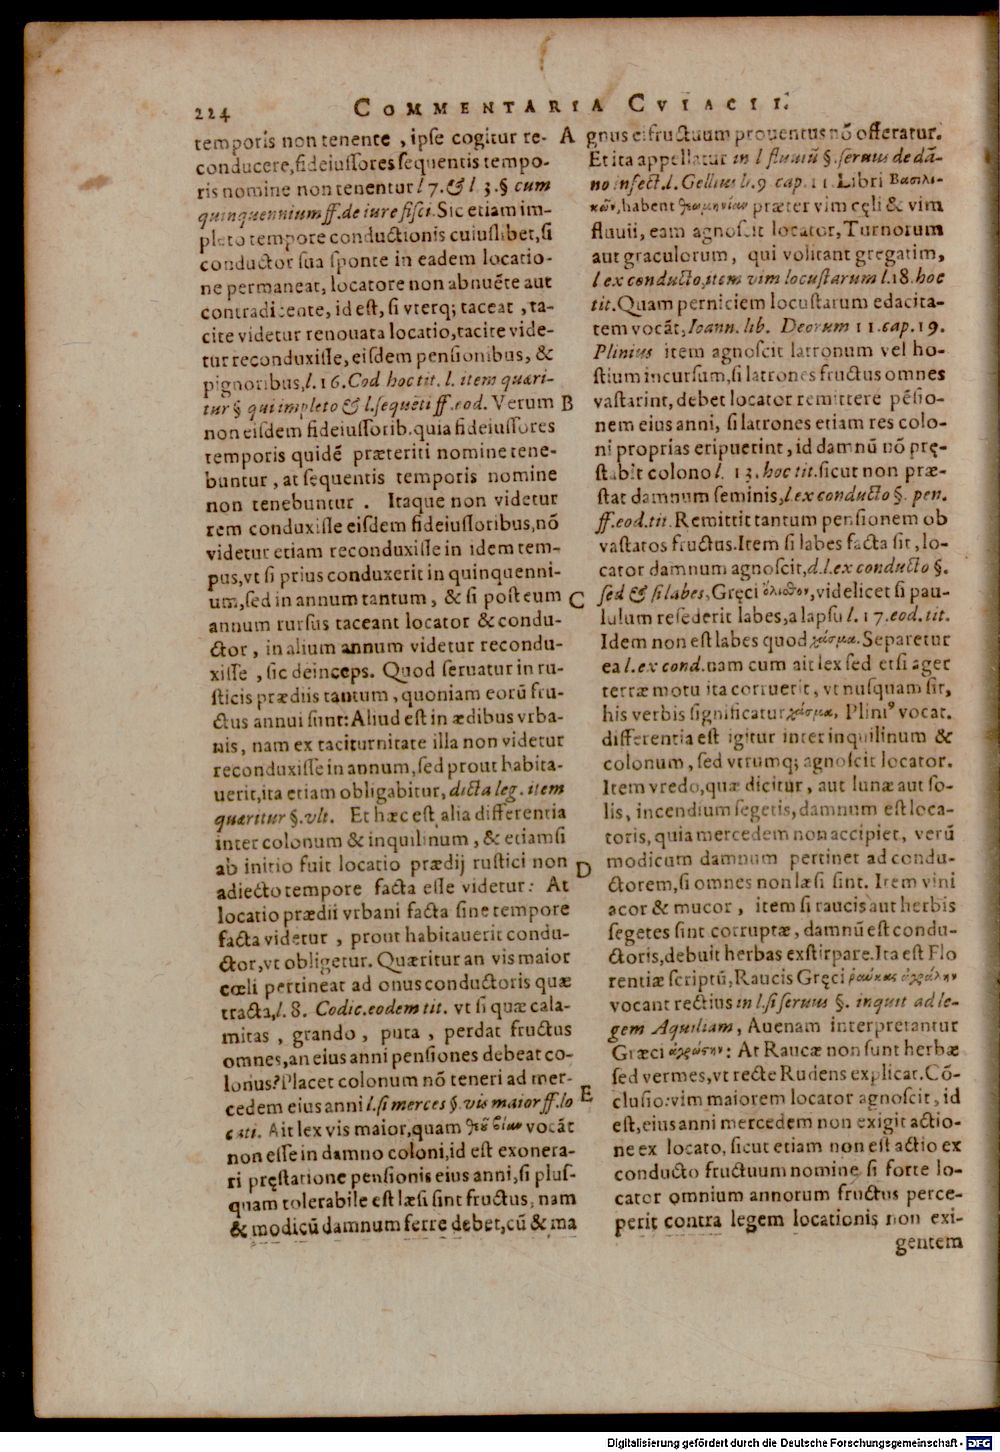 224
COMMENTARIA CVIACII I.
temporis non tenente, ipse cogitur re-
conducere, fideiussores sequentis tempo-
ris nomine non tenentur l 7. & l. 3. § cum
quinquennium ff. de iure fisci. Sic etiam im-
pleto tempore conductionis cuiuslibet, si
conductor sua sponte in eadem locatio-
ne permaneat, locatore non abnuēte aut
contradicente, id est, si vterq; taceat, ta-
cite videtur renouata locatio, tacite vide-
tur reconduxisse, eisdem pensionibus, &
pignoribus, l. 16. Cod hoc tit. l. item quæri-
tur § qui impleto & l. sequēti ff. eod. Verum
non eisdem fideiussorib. quia fideiussores
temporis quidē præteriti nomine tene-
buntur, at sequentis temporis nomine
non tenebuntur. Itaque non videtur
rem conduxisse eisdem fideiussoribus, nō
videtur etiam reconduxisse in idem tem-
pus, vt si prius conduxerit in quinquenni-
um, sed in annum tantum, & si post eum
annum rursus taceant locator & condu-
ctor, in alium annum videtur recondu-
xisse, sic deinceps. Quod seruatur in ru-
sticis prædiis tantum, quoniam eorū fru-
ctus annui sunt: Aliud est in ædibus vrba-
nis, nam ex taciturnitate illa non videtur
reconduxisse in annum, sed prout habita-
uerit, ita etiam obligabitur, dicta leg. item
quæritur §. vlt. Et hæc est alia differentia
inter colonum & inquilinum, & etiamsi
ab initio fuit locatio prædij rustici non
adiecto tempore facta esse videtur: At
locatio prædii vrbani facta sine tempore
facta videtur, prout habitauerit condu-
ctor, vt obligetur. Quæritur an vis maior
cœli pertineat ad onus conductoris quæ
tracta, l. 8. Codic. eodem tit. vt si quæ cala-
mitas, grando, puta, perdat fructus
omnes, an eius anni pensiones debeat co-
lonus? Placet colonum nō teneri ad mer-
cedem eius anni l. si merces §. vis maior ff. lo
cati. Ait lex vis maior, quam θεοῦ βίαν vocāt
non esse in damno coloni, id est exonera-
ri pręstatione pensionis eius anni, si plus-
quam tolerabile est læsi sint fructus, nam
& modicū damnum ferre debet, cū & ma
A
B
C
D
E
gnus ei fructuum prouentus nō offeratur.
Et ita appellatur in l fluminū §. seruus de dā-
no infect. l. Gellius li. 9 cap. 11. Libri Βασιλι-
κῶν, habent θεομηνίαν præter vim cęli & vim
fluuii, eam agnoscit locator, Turnorum
aut graculorum, qui volitant gregatim,
l ex conducto, item vim locustarum l. 18. hoc
tit. Quam perniciem locustarum edacita-
tem vocāt, Ioann. lib. Deorum 11. cap. 19.
Plinius item agnoscit latronum vel ho-
stium incursum, si latrones fructus omnes
vastarint, debet locator remittere pēsio-
nem eius anni, si latrones etiam res colo-
ni proprias eripuerint, id damnū nō prę-
stabit colono l. 13. hoc tit. sicut non præ-
stat damnum seminis, l. ex conducto §. pen.
ff. eod. tit. Remittit tantum pensionem ob
vastatos fructus. Item si labes facta sit, lo-
cator damnum agnoscit, d. l. ex conducto §.
sed & si labes, Gręci ὄλισθον, videlicet si pau-
lulum resederit labes, a lapsu l. 17. eod. tit.
Idem non est labes quod χάσμα. Separetur
ea l. ex cond. nam cum ait lex sed etsi ager
terræ motu ita corruerit, vt nusquam sit,
his verbis significatur χάσμα, Pliniꝰ vocat.
differentia est igitur inter inquilinum &
colonum, sed vtrumq; agnoscit locator.
Item vredo, quæ dicitur, aut lunæ aut so-
lis, incendium segetis, damnum est loca-
toris, quia mercedem non accipiet, verū
modicum damnum pertinet ad condu-
ctorem, si omnes non læsi sint. Item vini
acor & mucor, item si raucis aut herbis
segetes sint corruptæ, damnū est condu-
ctoris, debuit herbas exstirpare. Ita est Flo
rentiæ scriptū, Raucis Gręci
vocant rectius in l. si seruus §. inquit ad le-
gem Aquiliam, Auenam interpretantur
Græci : At Raucæ non sunt herbæ
sed vermes, vt recte Rudens explicat. Cō-
clusio: vim maiorem locator agnoscit, id
est, eius anni mercedem non exigit actio-
ne ex locato, sicut etiam non est actio ex
conducto fructuum nomine, si forte lo-
cator omnium annorum fructus perce-
perit contra legem locationis non exi-
gentem
Digitalisierung gefördert durch die Deutsche Forschungsgemeinschaft - DFG